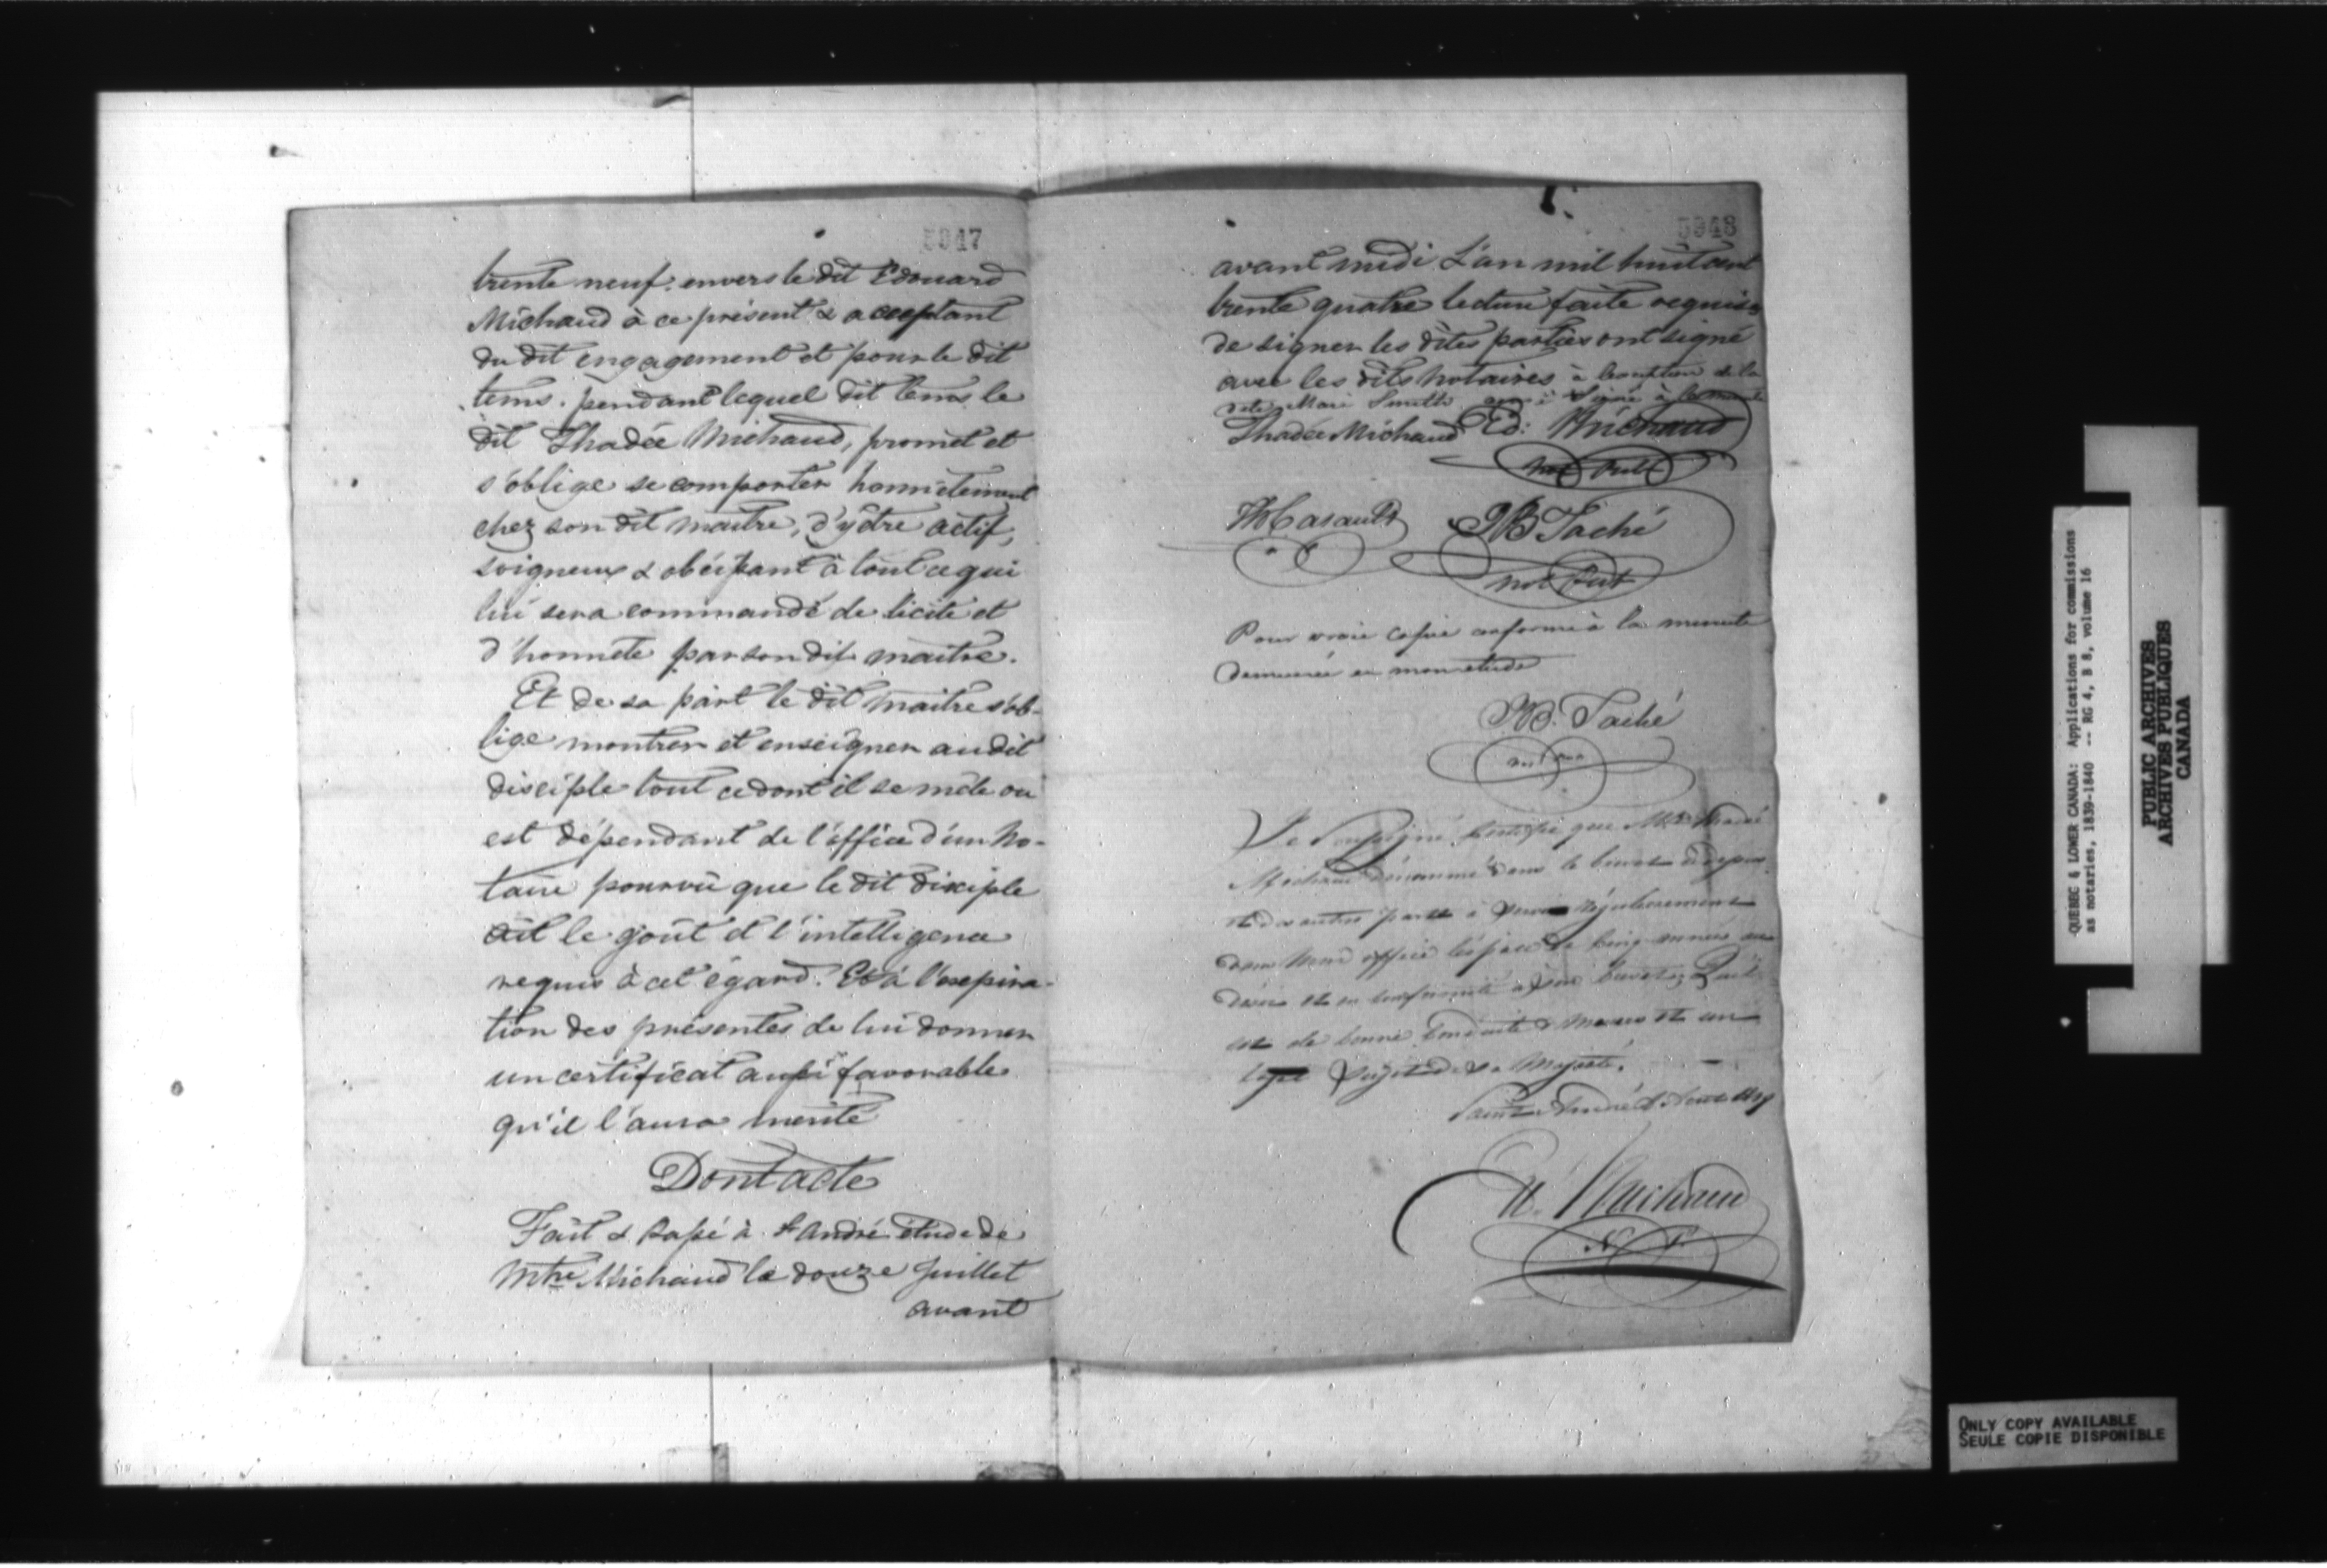 5947
trente neuf. envers le dit Edouard
Michaud à ce présent & acceptant
du dit engagement et pour le dit
tems. pendant lequel dit tems le
dit Thadée Michaud, promet et
s'oblige se comporter honnêtement
chez son dit maitre, d'y être actif,
soigneux & obéissant à tout ce qui
lui sera commandé de licite et
d'honnête par son dit maitre.
Et de sa part le dit maitre s'ob-
lige montrer et enseigner au dit
disciple tout ce dont il se mêle ou
est dépendant de l'office d'un No-
taire pourvû que le dit disciple
ait le goût et l'intelligence
requis à cet égard. Et à l'expira-
tion des présentes de lui donner
un certificat aussi favorable
qu'il l'aura mérité
Dont acte
Fait & passé à St André étude de
Mtre Michaud le douze Juillet
avant
5948
avant midi L'an mil huit cent
trente quatre lecture faite requis
de signer les dites parties ont signé
avec les dits notaires à l'exception de la
dite Smith
Thadée Michaud Ed: Michaud
Not Publ
Casault JB Taché
Not Pub
Pour vraie copie conforme à la minute
demeurée en mon etude
JB. Taché
Je Soussigné Certifie que
Michaud dénommé dans le brevet
et des autres parts a servi régulièrement
dans mon office l'espace de cinq années
et en conformité à son brevet
est de bonne conduite & moeurs et un
loyal Sujet de Sa Majesté.
Saint André
Ed. Michaud
N. P.
QUEBEC & LOWER CANADA: Applications for commissions
as notaries, 1839-1840 -- RG 4, B 8, volume 16
PUBLIC ARCHIVES
ARCHIVES PUBLIQUES
CANADA
ONLY COPY AVAILABLE
SEULE COPIE DISPONIBLE